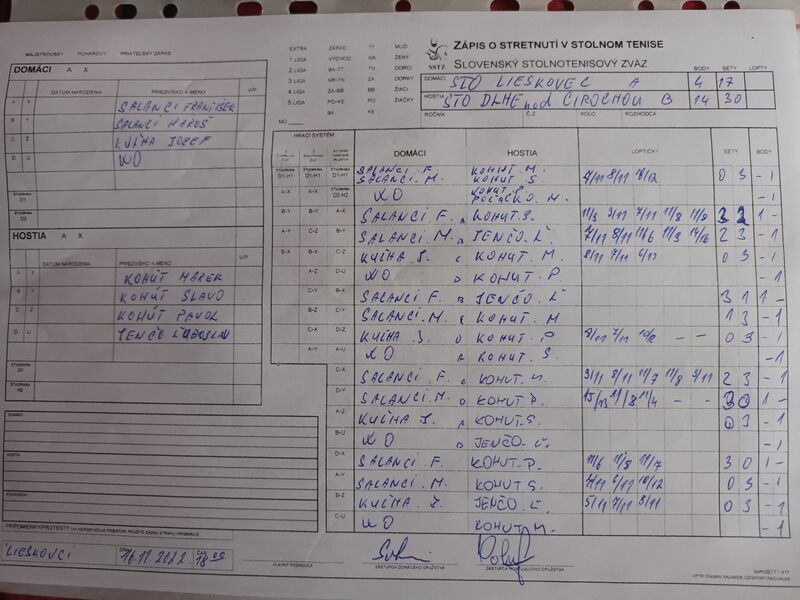 MAJSTROVSKÝ POHÁROVÝ PRIATEĽSKÝ ZÁPAS
DOMÁCI A X
DÁTUM NARODENIA PRIEZVISKO A MENO V/P
A X SALANCI FRANTIŠEK
B Y SALANCI MAROŠ
C Z KUĽHA JOZEF
D U WO
ŠTVORHRA D1
ŠTVORHRA D2
HOSTIA A X
DÁTUM NARODENIA PRIEZVISKO A MENO V/P
A X KOHÚT MAREK
B Y KOHÚT SLAVO
C Z KOHÚT PAVOL
D U JENČO ĽUBOSLAV
DOMÁCI
HOSTIA
ROZHODCA
LIEŠKOVCI 16.11.2022 ČAS 18 00
EXTRA ZÁPAD TT MUŽI
1 LIGA VÝCHOD NR ŽENY
2 LIGA BA-TT TN DORCI
3 LIGA NR-TN ZA DORKY
4 LIGA ZA-BB BB ŽIACI
5 LIGA PO-KE PO ŽIAČKY
BA KE
MO
SSTZ
ZÁPIS O STRETNUTÍ V STOLNOM TENISE
SLOVENSKÝ STOLNOTENISOVÝ ZVÄZ
BODY SETY LOPTY
DOMÁCI STO LIESKOVEC A 4 17
HOSTIA STO DLHÉ nad CIROCHOU B 14 30
ROČNÍK Č.Z KOLO ROZHODCA
HRACÍ SYSTÉM DOMÁCI HOSTIA LOPTIČKY SETY BODY
D1-H1 D1-H1 D1-H1 SALANCI F. SALANCI M. KOHUT M. KOHUT S. 8/11 10/12 0 3 - 1
A-X A-X D2-H2 WO KOHUT P. M. - 1
B-Y B-Y A-X SALANCI. F. A KOHUT. S. 7/11 11/8 3 2 1 -
A-Y C-Z B-Y SALANCI. M. B JENČO. Ľ 7/11 8/11 11/6 11/3 14/16 2 3 - 1
B-X B-X C-Z KUĽHA J. C KOHUT. M. 8/11 7/11 6/11 0 3 - 1
A-Z C-U WO D KOHUT. P. - 1
C-Y B-X SALANCI. F. B JENČO. Ľ 3 1 1 -
B-Z A-Y SALANCI. M. C KOHUT. M 1 3 - 1
C-X D-Z KUĽHA J. D KOHUT. P 8/11 7/11 10/12 - - 0 3 - 1
A-Y A-U WO A KOHUT. S. - 1
C-X SALANCI. F. C KOHUT. M. 9/11 8/11 11/7 11/8 9/11 2 3 - 1
D-Y SALANCI. M. D KOHUT P. 15/13 11/8 11/4 - - 3 0 1 -
A-Z KUĽHA J. KOHUT S. 0 3 - 1
B-U WO JENČO. Ľ. - 1
D-X SALANCI. F. KOHUT. P. 11/6 11/8 11/7 3 0 1 -
A-Y SALANCI. M. KOHUT S. 6/11 10/12 0 3 - 1
B-Z KUĽHA J. JENČO. Ľ 5/11 7/11 8/11 0 3 - 1
C-U WO KOHUT M. - 1
HLAVNÝ ROZHODCA ZÁSTUPCA DOMÁCEHO DRUŽSTVA ZÁSTUPCA HOSŤUJÚCEHO DRUŽSTVA